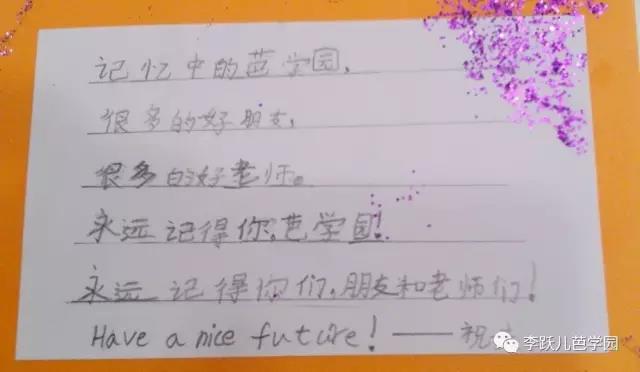 记忆中的芭学园,
很多的好朋友,
很多的好老师。
永远记得你,芭学园!
永远记得你们,朋友和老师们!
Have a nice future! ——祝
李跃儿芭学园